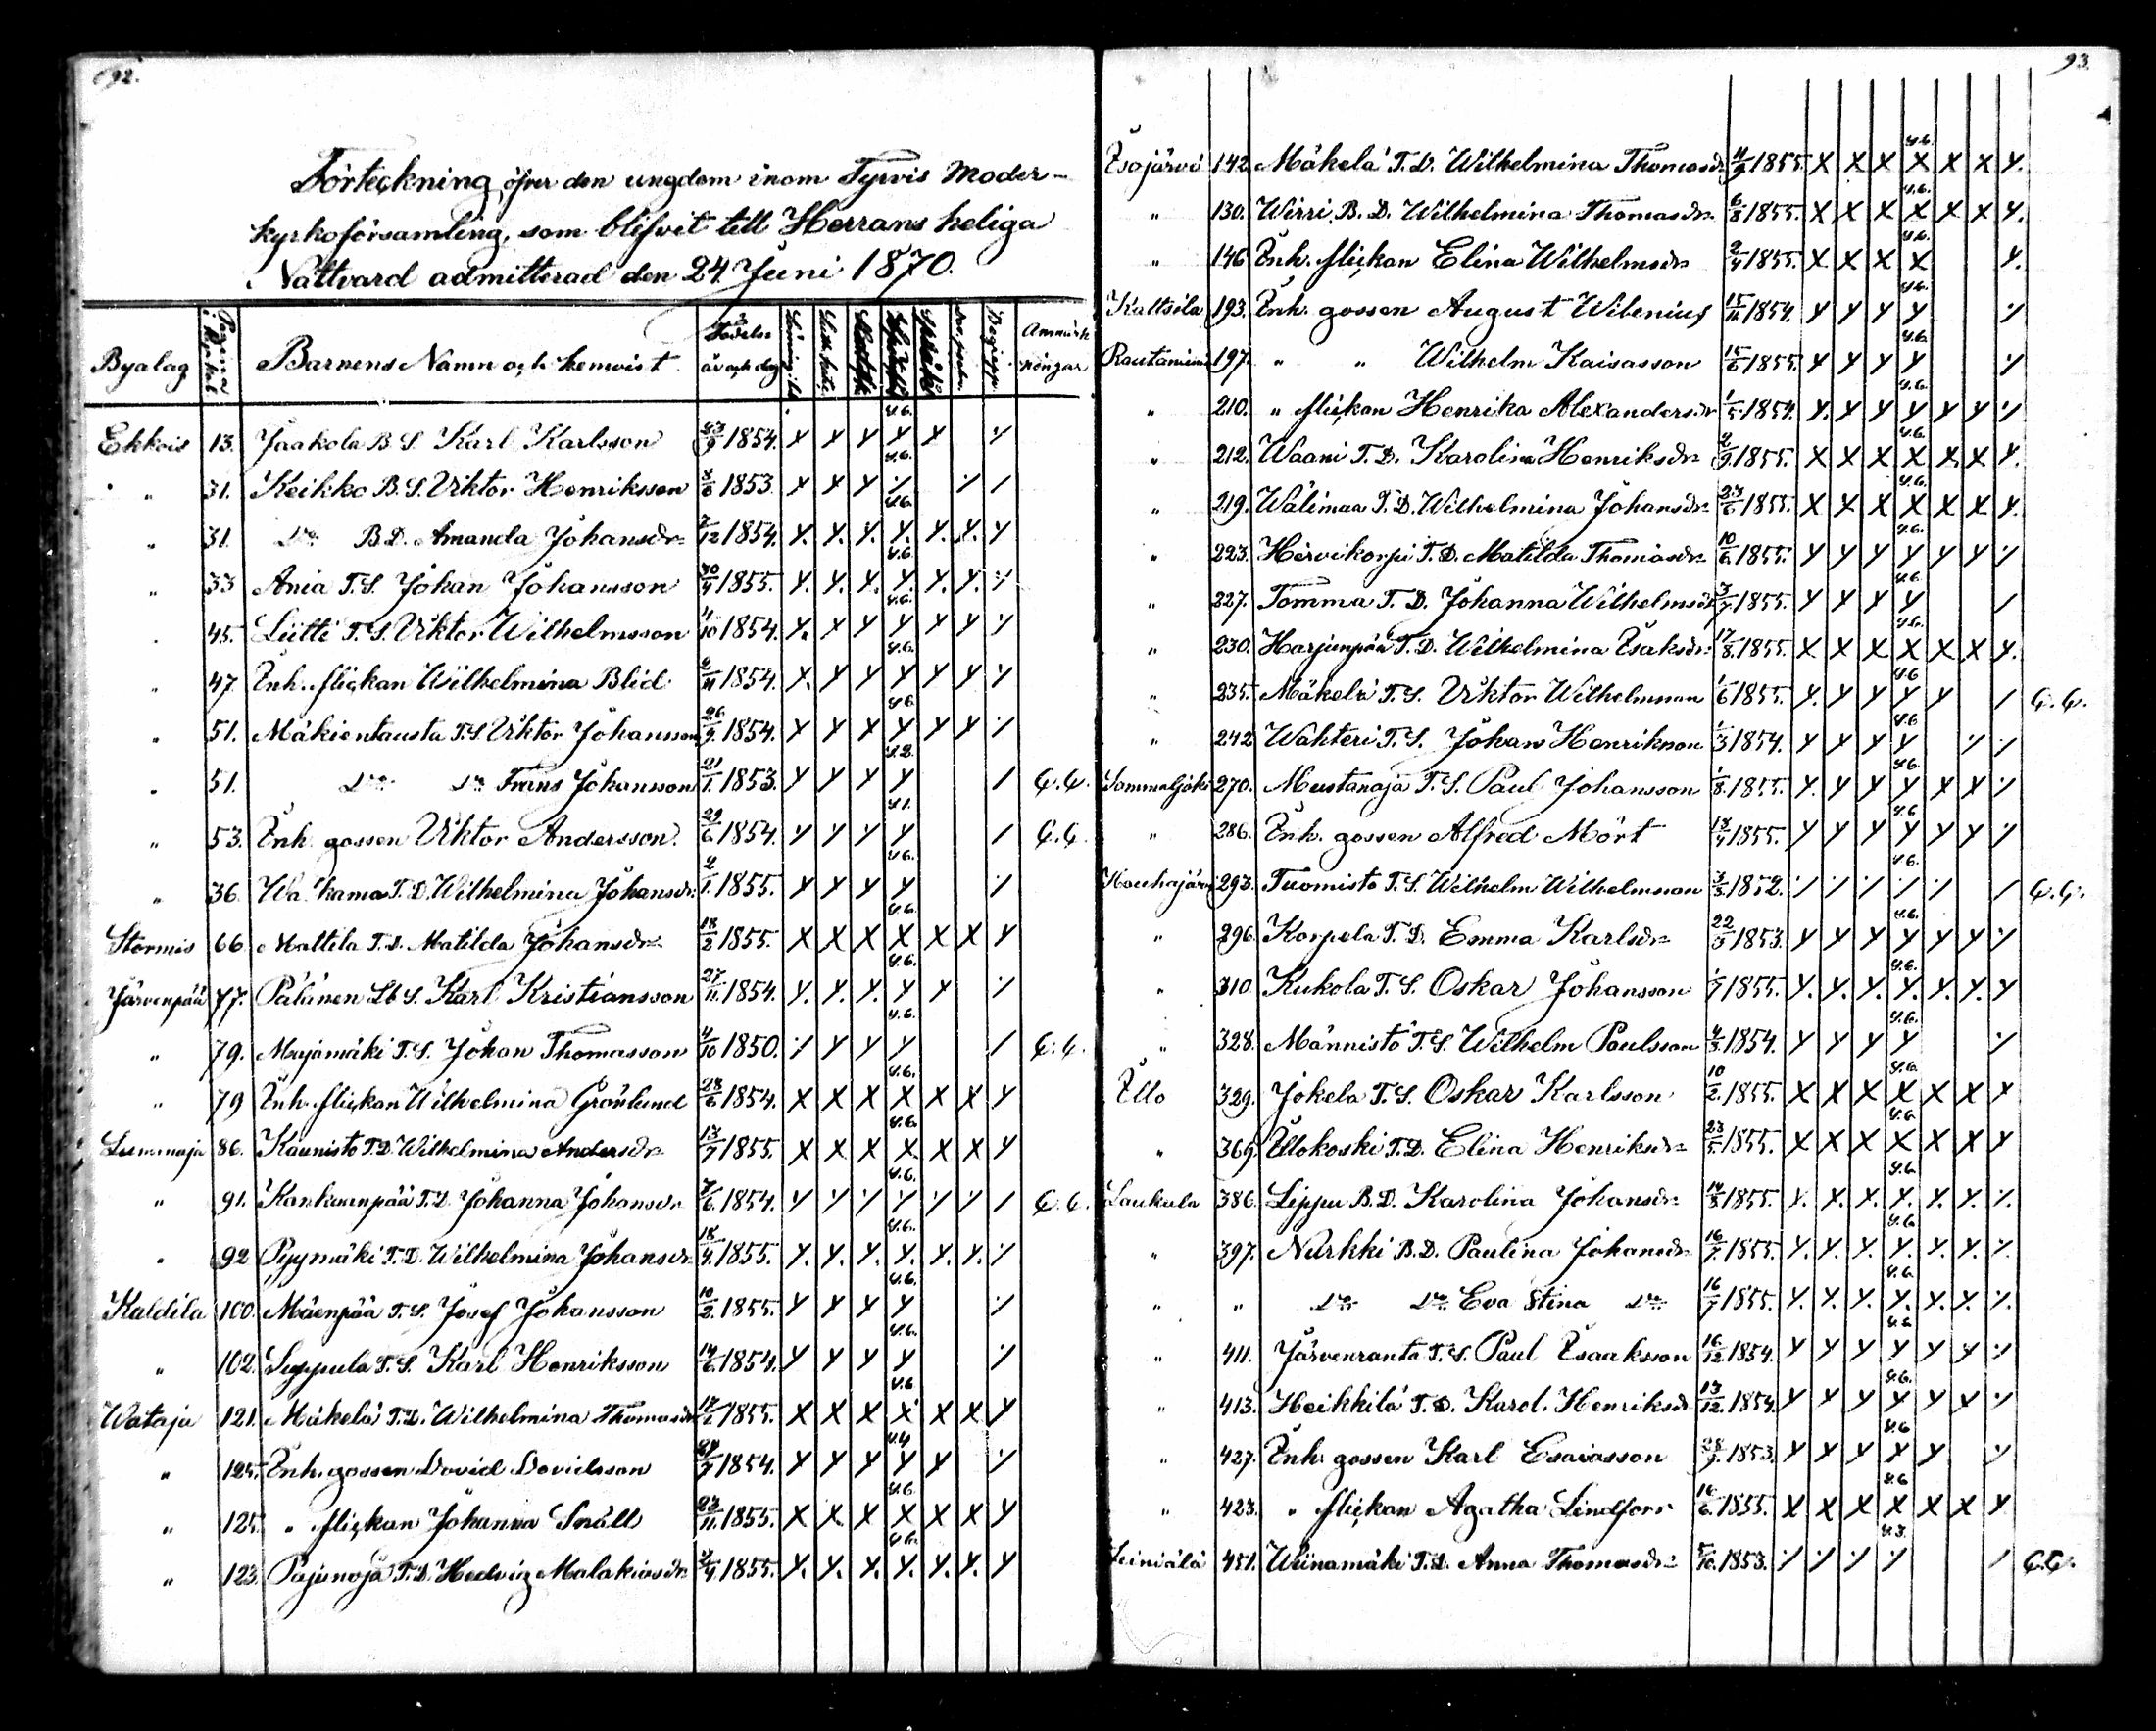 92.
Förteckning öfver den ungdom inom Tyrvis Moder-
kyrkoförsamling, som blifvit till Herrans heliga
Nattvard admitterad den 24 Juni 1870.
Byalag Pagina i boken Barnens Namn och hemvist Födelse år och dag Anmärkningar
Ekkois 13. Jaakola B. S. Karl Karlsson 23/9 1854. x x y y x ·/.
" 31. Keikko B. S. Viktor Henriksson 1853. x x y ·/. ·/. /
" 31. D:o B. D. Amanda Johansdr 7/12 1854. y. y. y. y. y. y. y
" 33 Ania T. S. Johan Johansson 30/4 1855. y. y. y. y. y. y. ·/.
" 45. Liitti T. S. Viktor Wilhelmsson 4/10 1854. y. x y y y y ·/.
" 47. Inh. flickan Wilhelmina Blid 1854. x. y y y y y ·/.
" 51. Mäkientausta T. S. Viktor Johansson 26/9. 1854. y y y y y y ·/.
" 51. D:o D:o Frans Johansson 21/1. 1853. y y y y / C. C.
" 53. Inh. gossen Viktor Andersson. 29/6. 1854. y y y y / C. C.
" 36. T. D. Wilhelmina Johansdr. 2/1. 1855. y y y y ·/.
Stormis 66. Mattila T. D. Matilda Johansdr 18/2 1855. X X X X X X y
Järvenpää 77. Karl Kristiansson 27/11. 1854. y. y. y. y y ·/.
" 79. Majamäki T. S. Johan Thomasson 4/10 1850. ·/. y y y / C. C.
" 79 Inh. flickan Wilhelmina Grönlund 28/6 1854. X X X X X X y
Lummaja 86. Kaunisto T. D. Wilhelmina Andersdr 13/7 1855. X X X X. X X y
" 91. Kankaanpää T. D. Johanna Johansdr 7/6. 1854. ·/. ·/. ·/. ·/. ·/. ·/. / C. C.
" 92 Pyymäki T. D. Wilhelmina Johansdr 18/4. 1855. y. y. y. y. y. y. ·/.
Kaldila 100. Mäenpää T. S. Josef Johansson 10/2. 1855. y y y y ·/.
" 102. Seppula T. S. Karl Henriksson 14/6 1854. y y y y ·/.
Wataja 121. Mäkelä T. D. Wilhelmina Thomasdr 1855. X X X X X X y
" 125. Inh. gossen David Davidsson 24/7 1854. y y y y y ·/.
" 125. " flickan Johanna Snäll 23/11. 1855. X X X X X X y
" 123. Pajunoja T. D. Hedvig Malakiasdr 1855. y. y. y. y. y. y. y.
93.
Isojärvi 142. Mäkelä T. D. Wilhelmina Thomasdr 4/9 1855. X X X X X X y.
" 130. Wirri B. D. Wilhelmina Thomasdr. 6/8 1855. X X X X X X y.
" 146 Inh. flickan Elina Wilhelmsdr 2/4 1855. X X X X y.
Kaltsila 193. Inh. gossen August Wilenius 15/11 1854. y y y y ·/.
Rautaniemi 197. " " Wilhelm Kaisasson 15/6 1855. y y y y ·/.
" 210. " flickan Henrika Alexandersdr 1/5. 1854. y. y y y y y ·/.
" 212. Waani T. D. Karolina Henriksdr 2/9. 1855. X X X X X X y.
" 219. Wälimaa T. D. Wilhelmina Johansdr 23/6 1855. X X X X X X y.
" 223. Hervikorpi T. D. Matilda Thomasdr 10/6. 1855. y y y y y y ·/.
" 227. Tomma T. D. Johanna Wilhelmsdr 3/7 1855. y y y y /
" 230. Harjunpää T. D. Wilhelmina Isaksdr 17/8. 1855. X X X X X X y.
" 235. Mäkelä T. S. Viktor Wilhelmsson 1/6 1855. y. y y y y / C. C.
" 242 Wahteri T. S. Johan Henriksson 1/3 1854. y y y y ·/. ·/.
Sammaljoki 270. Mustanoja T. S. Paul Johansson 1/8. 1855. y. y y y x x ·/.
" 286. Inh. gossen Alfred Mört 18/4 1855. y y y y y y ·/.
Houhajärvi 293. Tuomisto T. S. Wilhelm Wilhelmsson 3/3 1852. ·/. ·/. ·/. ·/. ·/. / C. C.
" 296. Korpela T. D. Emma Karlsdr 22/5 1853. y y y y y y ·/.
" 310 Kukola T. S. Oskar Johansson 1/7 1855. y. y. y. y. y. y. y
" 328. Männistö T. S. Wilhelm Paulsson 4/3. 1854. y y y y ·/.
Illo 329. Jokela T. S. Oskar Karlsson 10/2. 1855. X X X X X X y
" 369. Illokoski T. D. Elina Henriksdr 23/5. 1855. X X X X X X y
Laukula 386. Lippu B. D. Karolina Johansdr 14/8 1855. y. y. y. y. y. y. ·/.
" 397. Nurkki B. D. Paulina Johansdr 16/7. 1855. y. y. y. y. y. y. ·/.
" " D:o D:o Eva Stina D:o 16/7 1855. y. y. y. y. y. y. ·/.
" 411. Järvenranta T. S. Paul Isaaksson 16/12. 1854. y y y y y y ·/.
" 413. Heikkilä T. D. Karol. Henriksdr 13/12. 1854. y y y y y x ·/.
" 427. Inh. gossen Karl Esaiasson 1853. y y y y y ·/.
" 423. " flickan Agatha Lindfors 16/6. 1855. X X X X X X y.
Leiniälä 451. Wiinamäki T. D. Anna Thomasdr 5/10. 1853. ·/. ·/. ·/. ·/. / C. C.